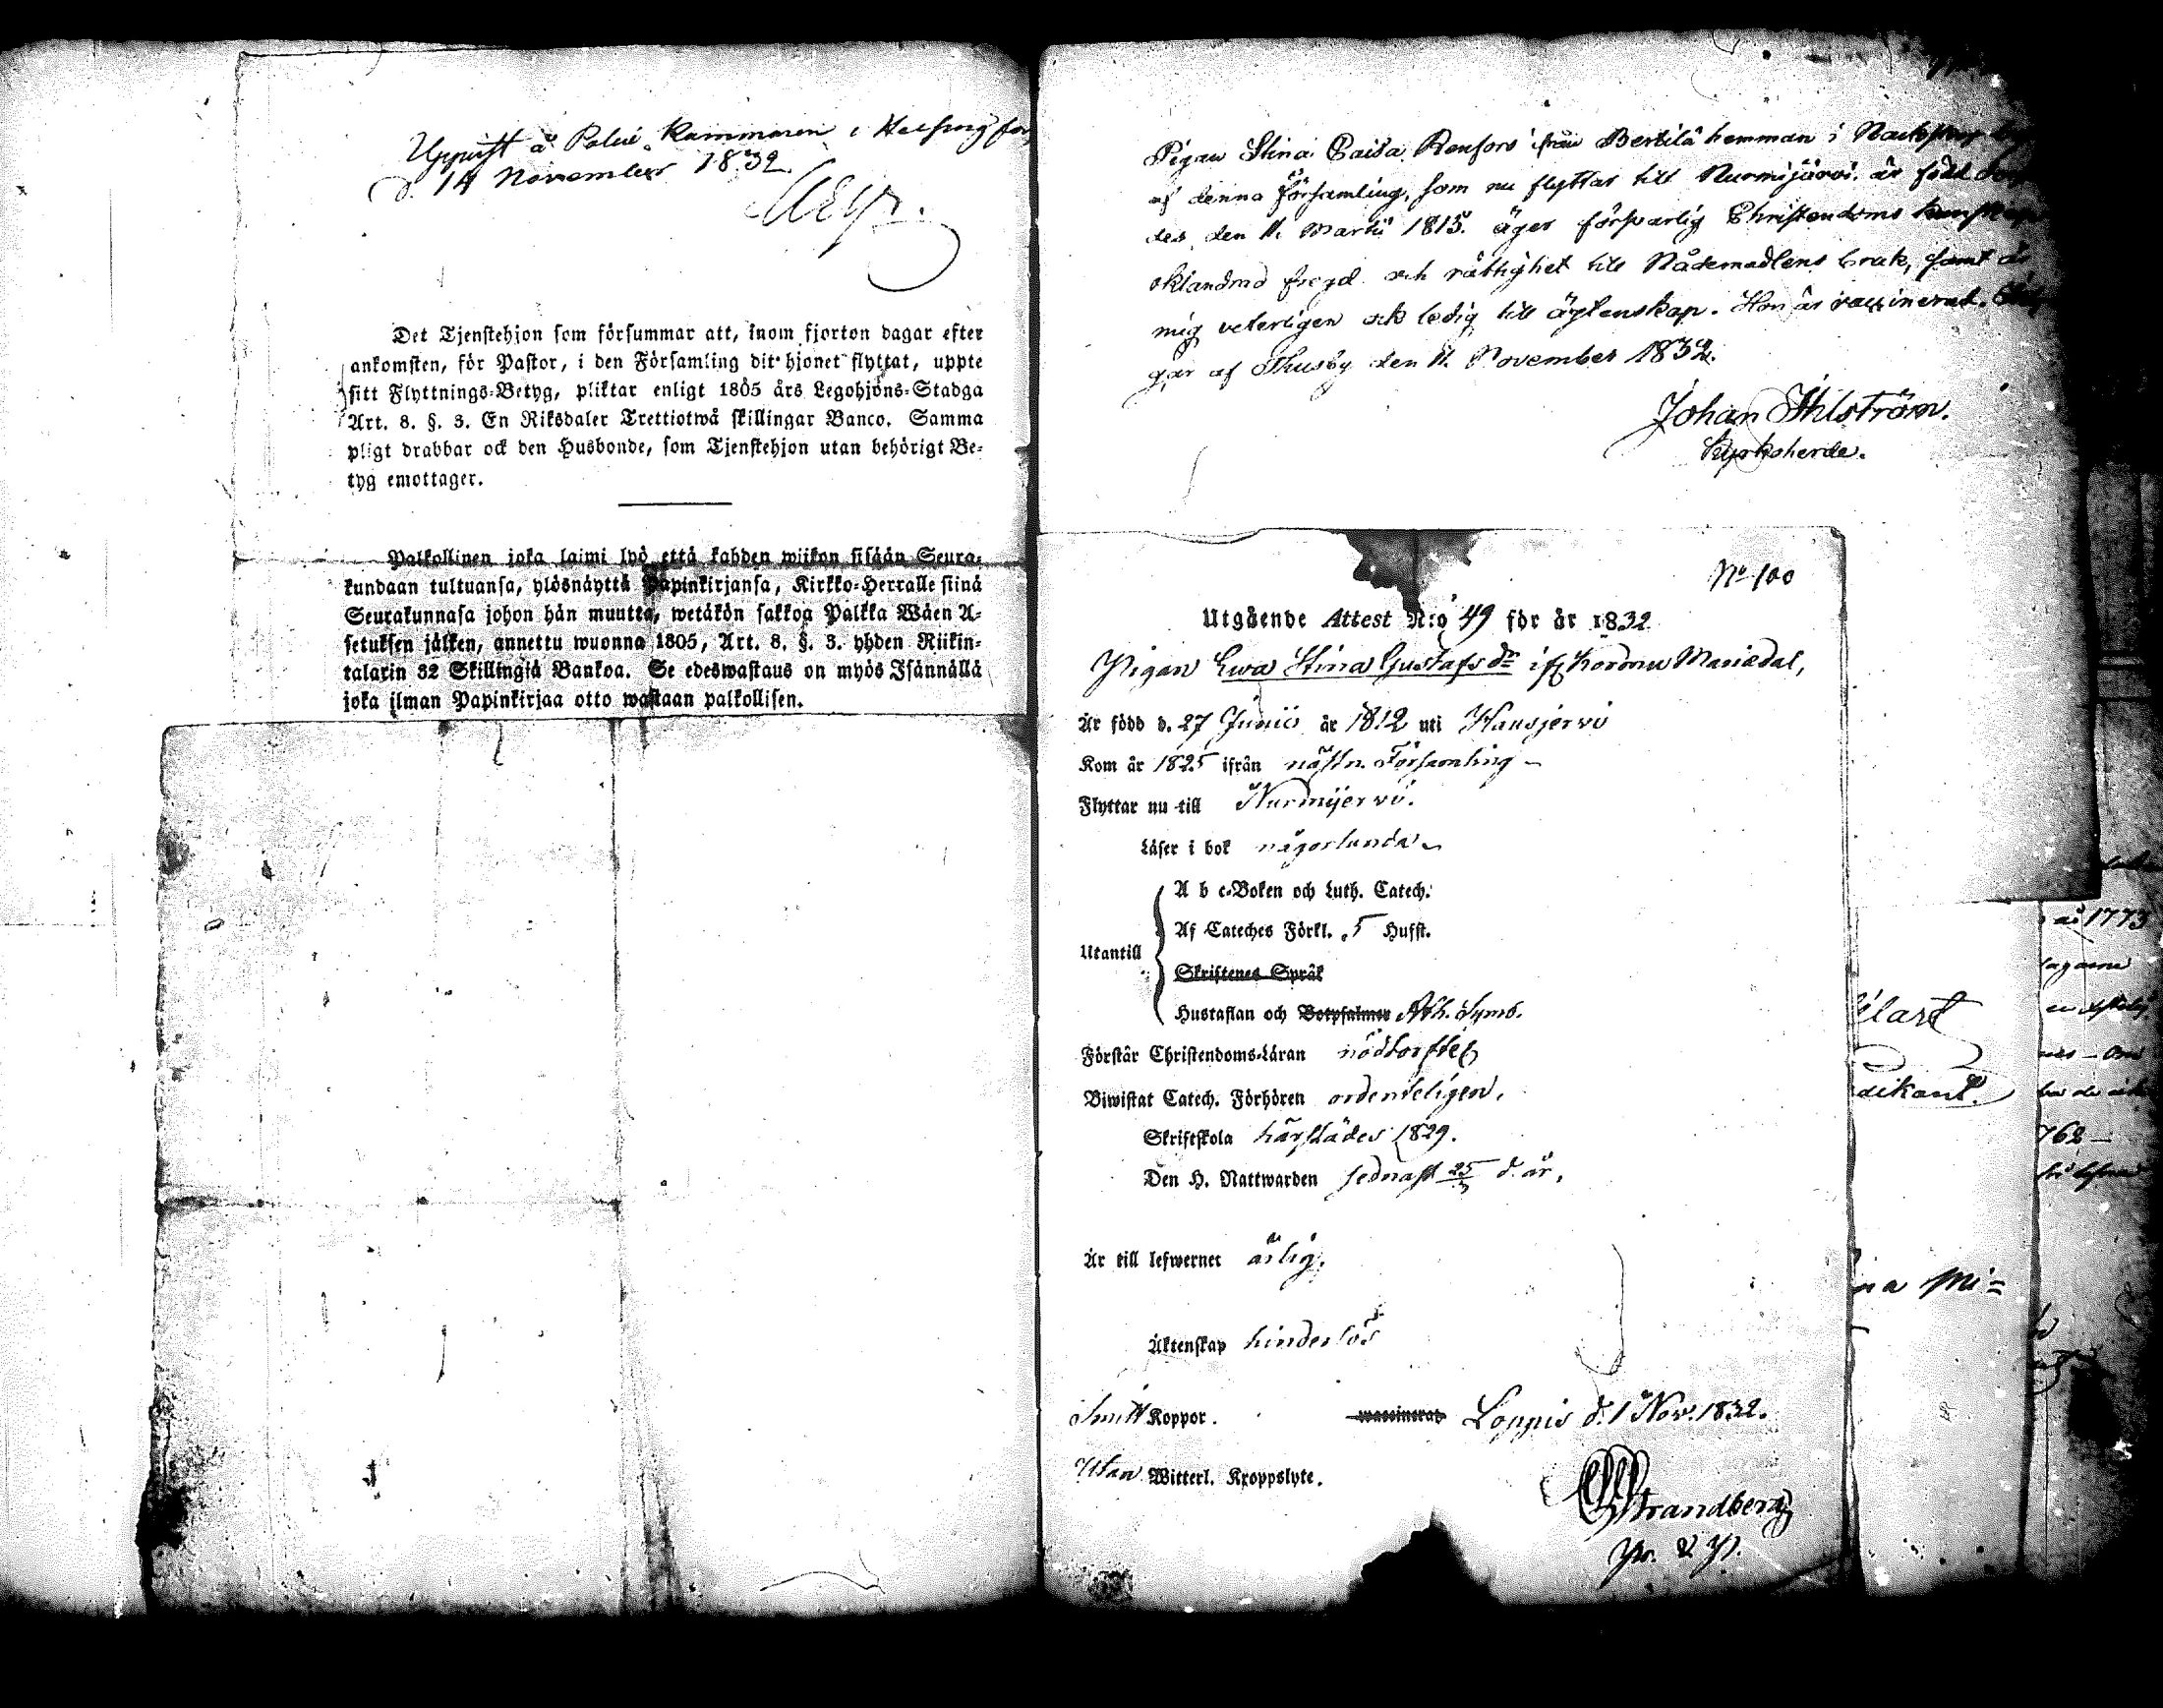 Uppvist å Polis Kammaren i Helsingfors
d. 14 November 1832

Det Tjenstehjon som försummar att, inom fjorton dagar efter
ankomsten, för Pastor, i den Församling dit hjonet flyttat, uppte
sitt Flyttnings-Betyg, pliktar enligt 1805 års Legohjons-Stadga
Art. 8. §. 3. En Riksdaler Trettiotwå skillingar Banco. Samma
pligt drabbar ock den Husbonde, som Tjenstehjon utan behörigt Be-
tyg emottager.

Palkollinen joka laimi lyö että kahden wiikon sisään Seura-
kundaan tultuansa, ylösnäyttä Papinkirjansa, Kirkko-Herralle siinä
Seurakunnasa johon hän muutta, wetäkön sakkoa Palkka Wäen A-
setuksen jälken, annettu wuonna 1805, Art. 8. §. 3. yhden Riikin-
talarin 32 Skillingiä Bankoa. Se edeswastaus on myös Isännällä
joka ilman Papinkirjaa otto wastaan palkollisen.

Pigan Stina Caisa Renfors ifrån Bertilä hemman i
af denna församling, som nu flyttar till Nurmijärvi, är född
des den 11. Martii 1815. äger förswarlig Christendoms kunskap
oklandrad fregd och rättighet till Nådemedlens bruk, samt är
mig veterligen ock ledig till äktenskap. Hon är vaccinerad.
gar af Thusby den 11. November 1832.
Johan Ahlström.
Kyrkoherde.

No 100
Utgående Attest N:o 49 för år 1832
Pigan Ewa Stina Gustafsdr ifr Kordnu Mariædal,
Är född d. 27 Junii år 1812 uti Hausjerwi
Kom år 1825 ifrån nästn. Församling
Flyttar nu till Nurmijerwi.
Läser i bok någorlunda
Utantill
A b c-Boken och Luth. Catech.
Af Cateches Förkl. 5 Hufst.
Skriftenes Språk
Hustaflan och Botpsalmer Ath. Symb.
Förstår Christendoms-Läran nödtorftel
Biwistat Catech. Förhören ordenteligen.
Skriftskola härstädes 1829.
Den H. Nattwarden sednast 25 d. år.
Är till lefwernet ärlig.
Äktenskap hinderlös
Haft Koppor. waccinerat Loppis d. 1 Nov. 1832.
Utan Witterl. Kroppslyte.
Strandberg
Pr. & P.

å 1773
dikant.
762
na Mi=